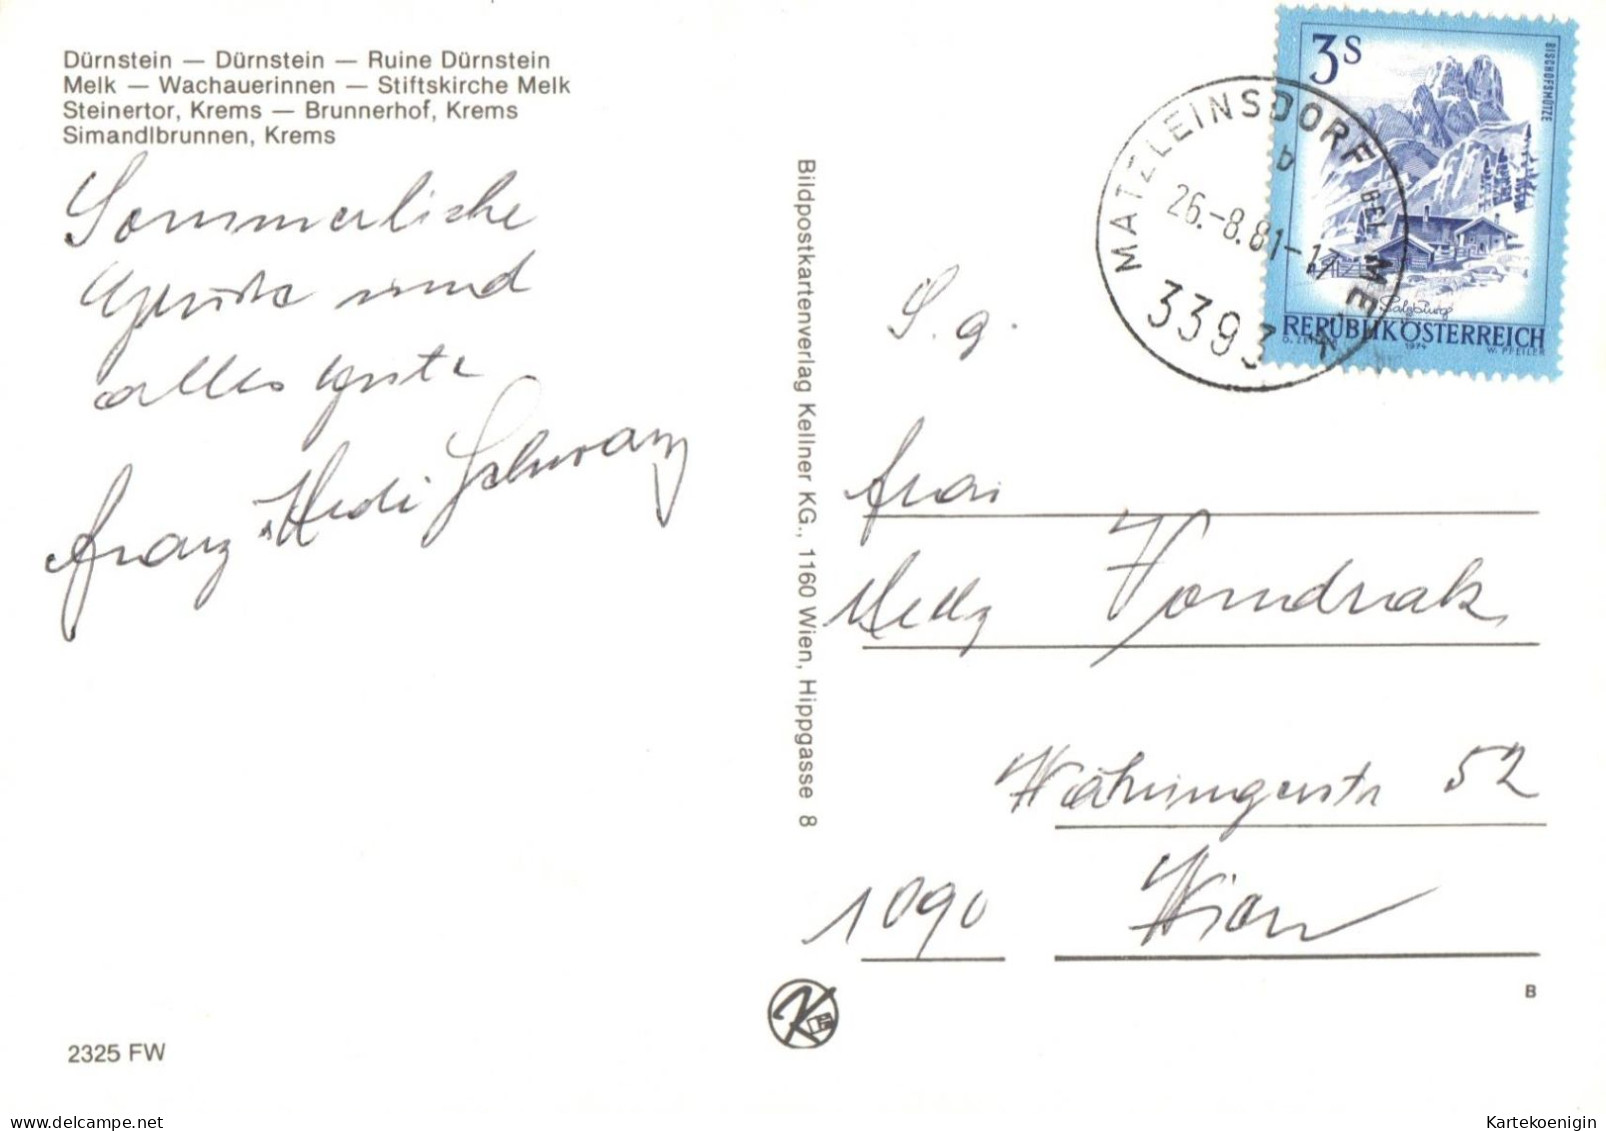 Dürnstein — Dürnstein — Ruine Dürnstein
Melk — Wachauerinnen — Stiftskirche Melk
Steinertor, Krems — Brunnerhof, Krems
Simandlbrunnen, Krems
Sommerliche
Grüße und
alles Gute
Franz u. Hedi Schwarz
2325 FW
Bildpostkartenverlag Kellner KG., 1160 Wien, Hippgasse 8
3S
BISCHOFSMÜTZE
Salzburg
REPUBLIK ÖSTERREICH
1974
W. PFEILER
MATZLEINSDORF BEI MELK
b
26.-8.81-17
3393
S. g.
Frau
Melly Vondrak
Währingerstr 52
1090 Wien
B
Kartekoenigin